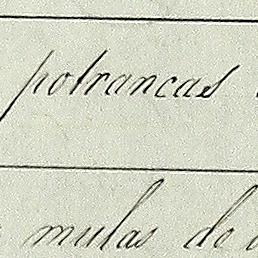 potrancas
mulas de